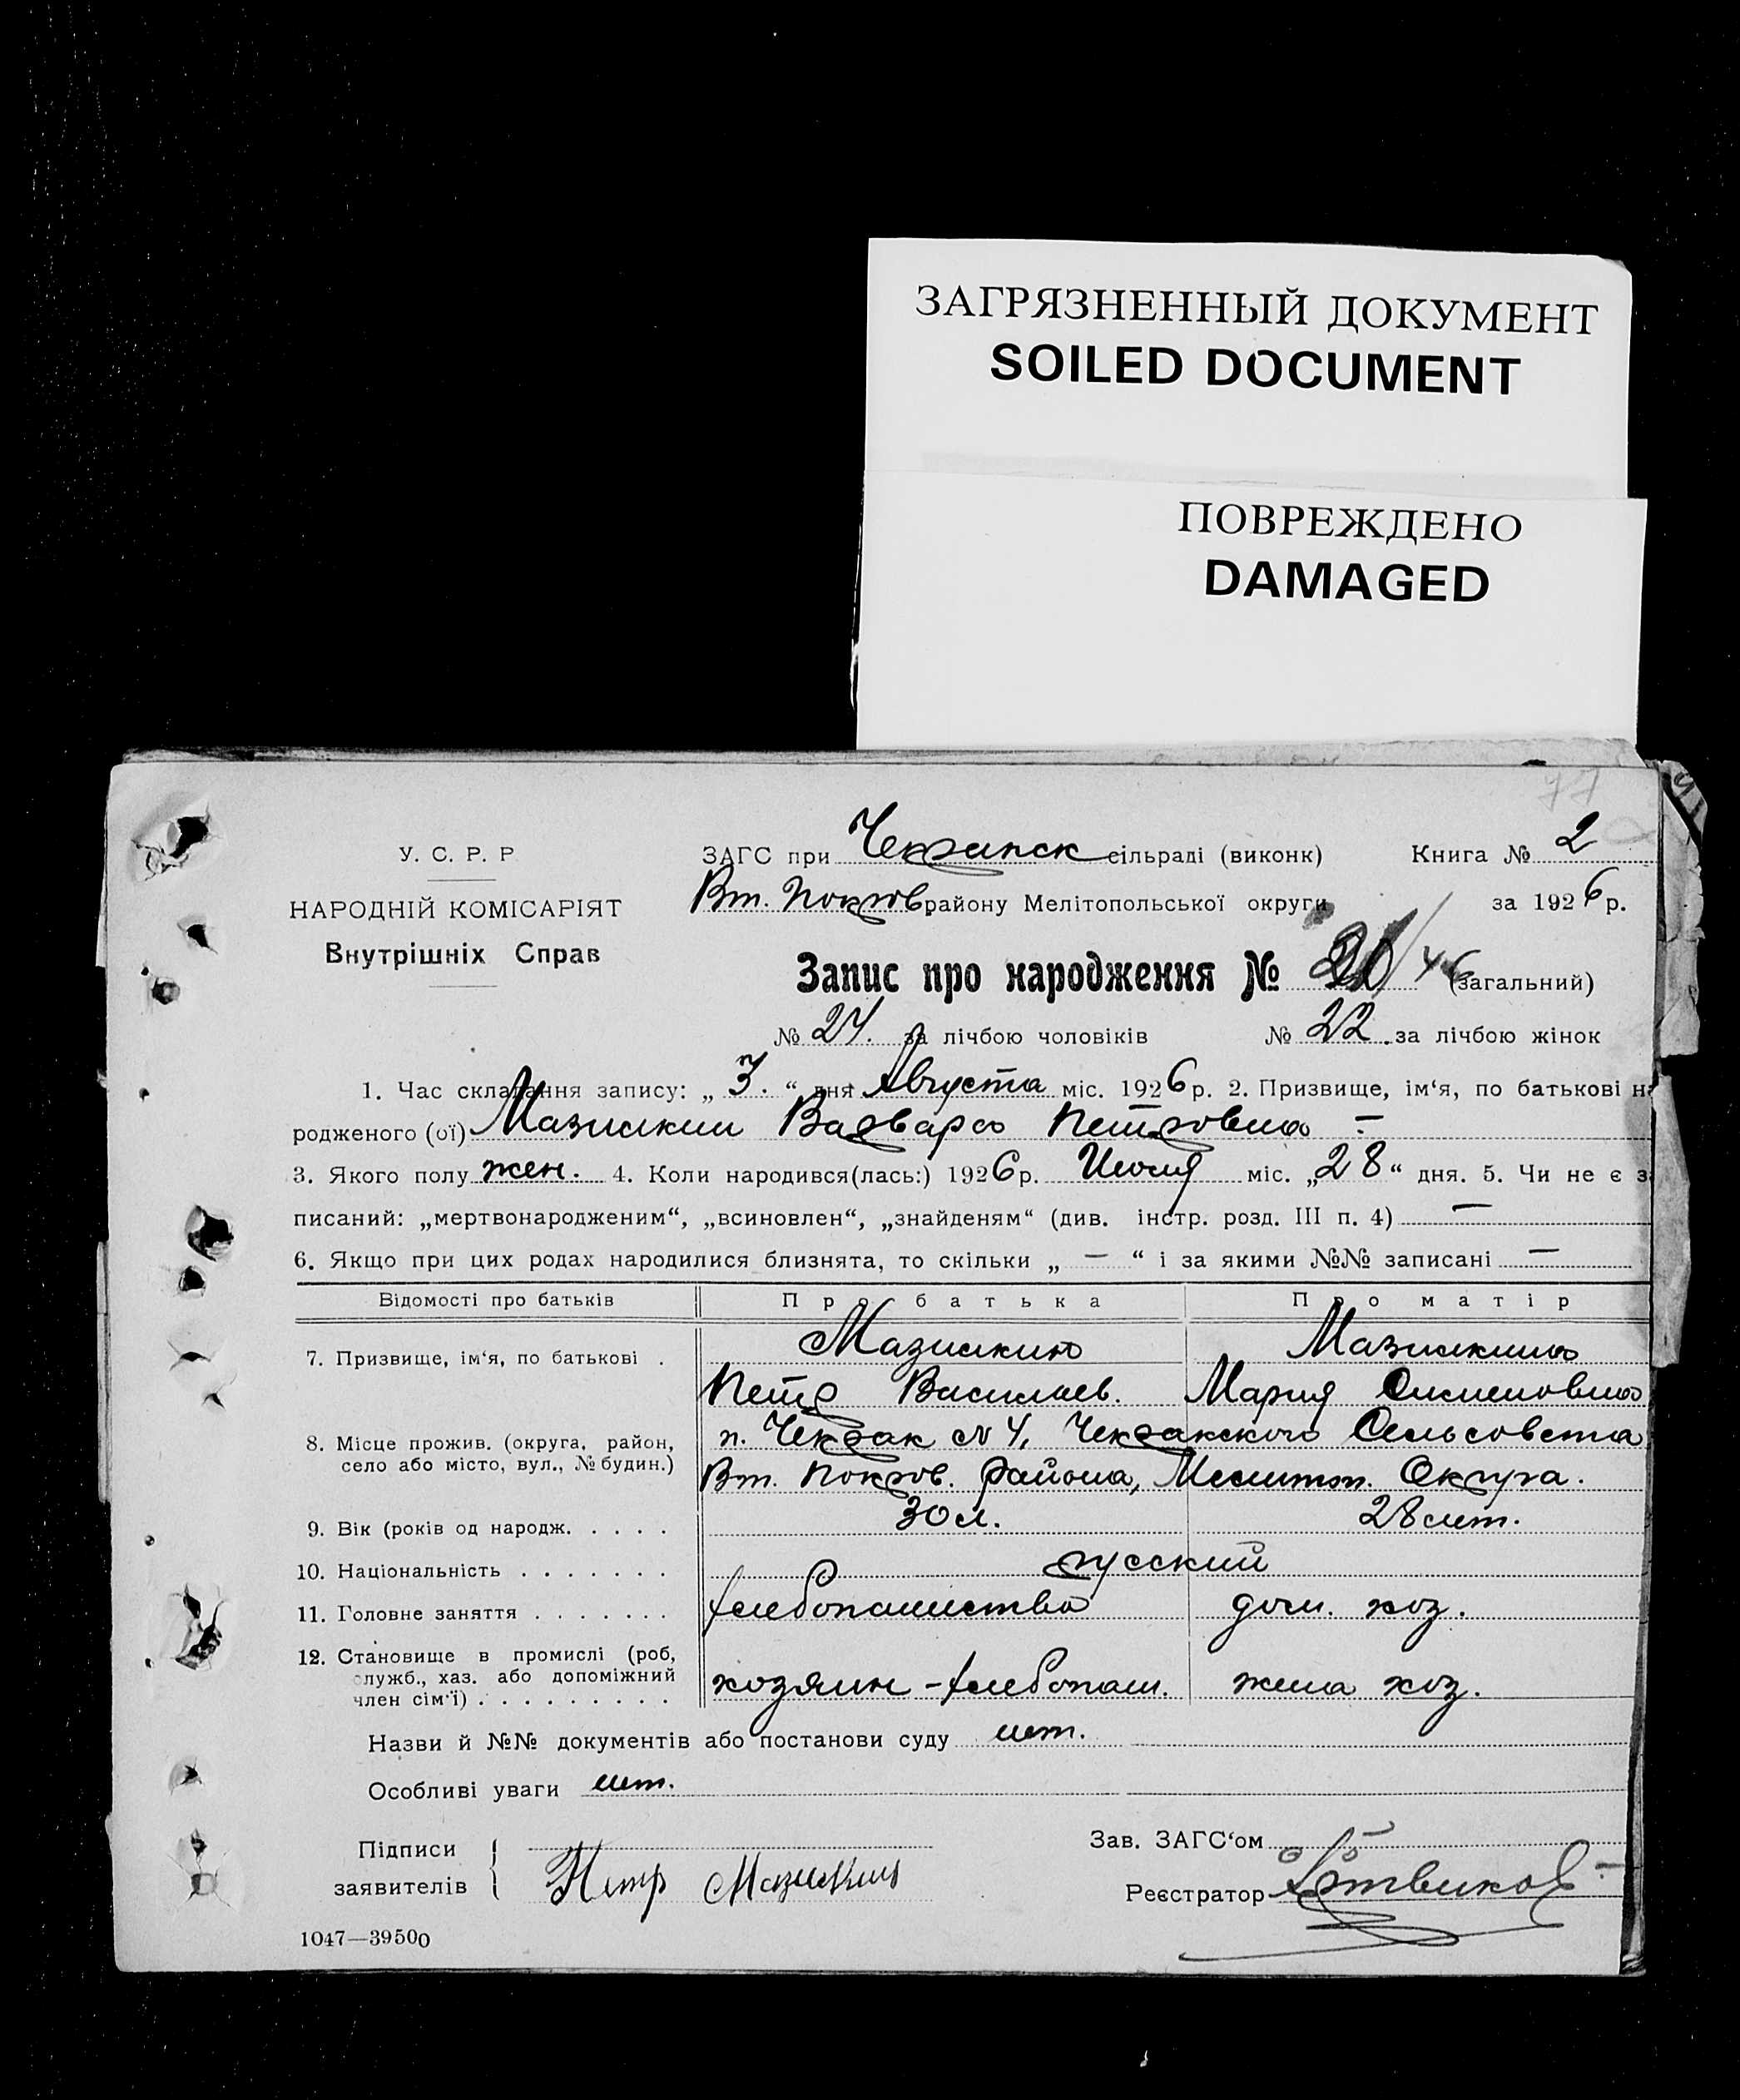 ЗАГРЯЗНЕННЫЙ ДОКУМЕНТ
SOILED DOCUMENT
ПОВРЕЖДЕНО
DAMAGED
77
У. С. Р. Р.
НАРОДНІЙ КОМІСАРІЯТ
Внутрішніх Справ
ЗАГС при сільраді (виконк) Книга № 2
Вт. Покров. району Мелітопольської округи за 1926 р.
Запис про народження № 46 (загальний)
№ 24. за лічбою чоловіків № 22. за лічбою жінок
1. Час складання запису: „3.“ дня Августа міс. 1926 р. 2. Призвище, ім‘я, по батькові на
родженого (ої) Варвара Петровна –
3. Якого полу жен. 4. Коли народився(лась:) 1926 р. міс. „28“ дня. 5. Чи не є за
писаний: „мертвонародженим“, „всиновлен“, „знайденям“ (див. інстр. розд. III п. 4) —
6. Якщо при цих родах народилися близнята, то скільки „ — “ і за якими №№ записані —
Відомості про батьків Про батька Про матір
7. Призвище, ім‘я, по батькові . Мазилкин Мазилкина
Петр Васильев. Мария
8. Місце прожив. (округа, район, п. Чекрак № 4, Чекракского Сельсовета
село або місто, вул., № будин.) Вт. Покров. Района, Мелитоп. Округа.
9. Вік (років од народж. . . . . 30 л. 28 лет.
10. Національність . . . . . . . русский
11. Головне заняття . . . . . . . хлебопашество дом. хоз.
12. Становище в промислі (роб,
служб., хаз. або допоміжний хозяин - хлебопаш. жена хоз.
член сім‘ї) . . . . . . . . .
Назви й №№ документів або постанови суду нет.
Особливі уваги нет.
Підписи Зав. ЗАГС‘ом
заявителів Петр Мазилкин Реєстратор
1047—39500